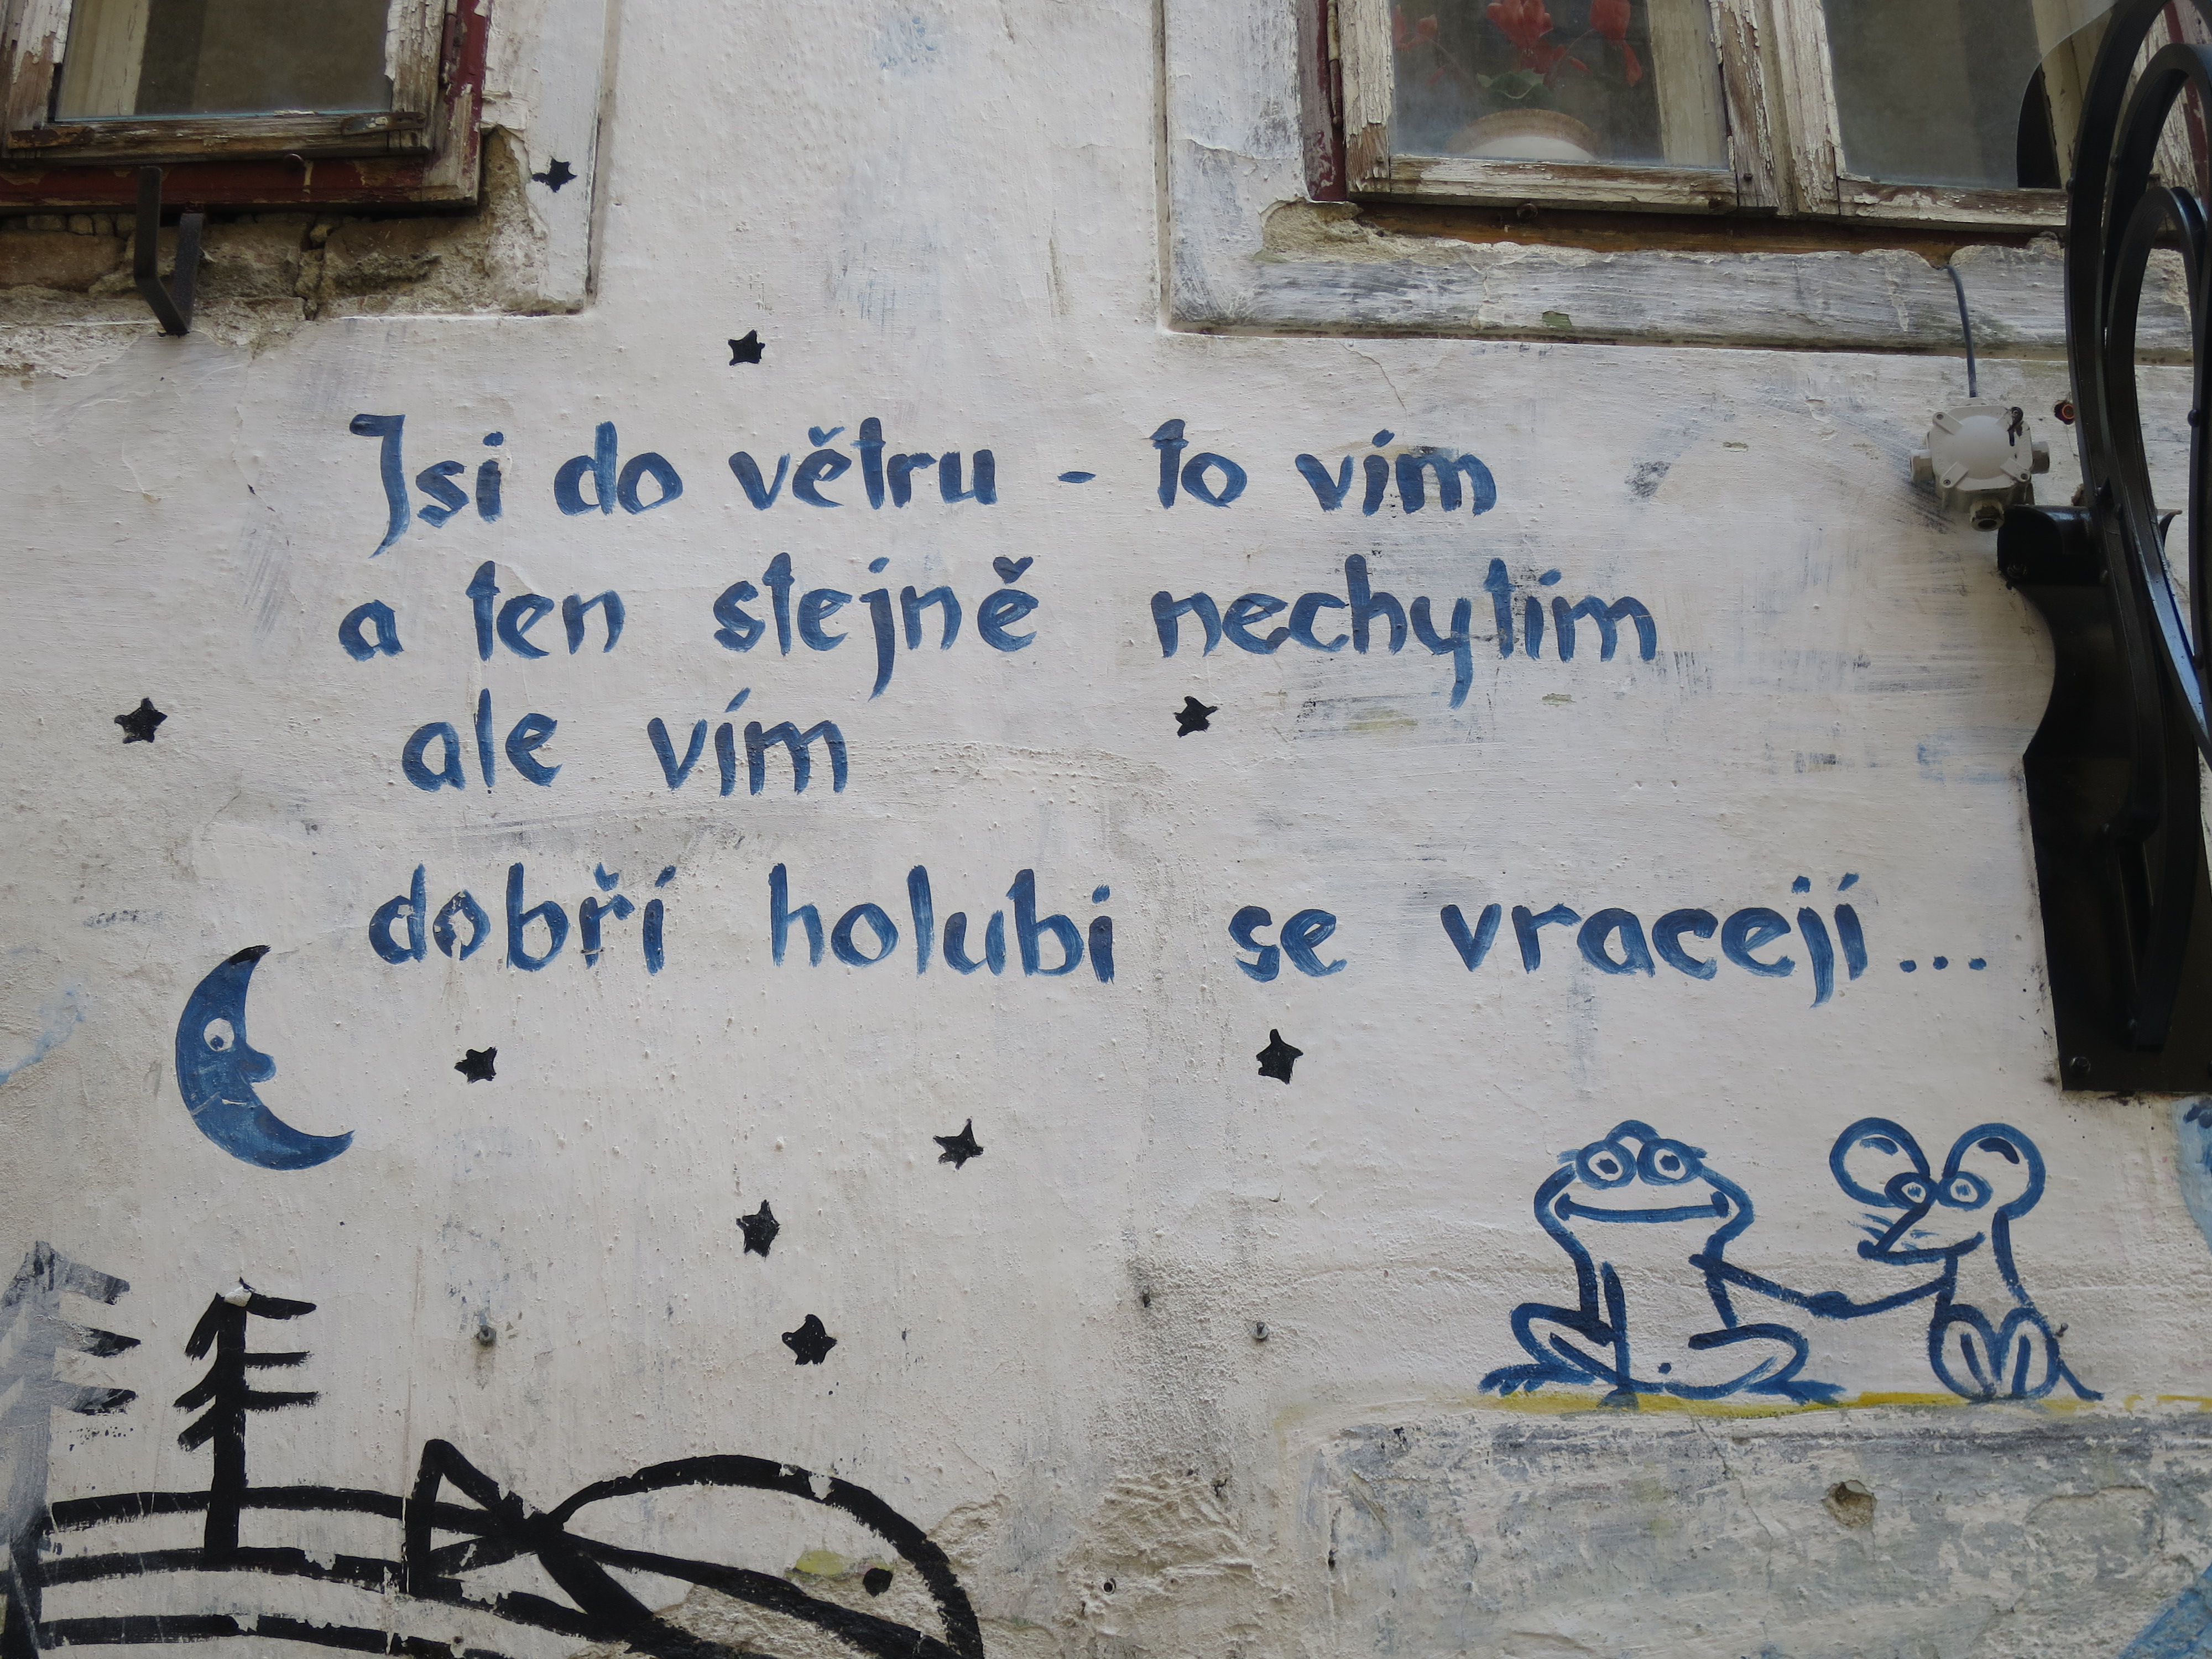 Jsi do větru - to vím
a ten stejně nechytím
ale vím
dobří holubi se vracejí...